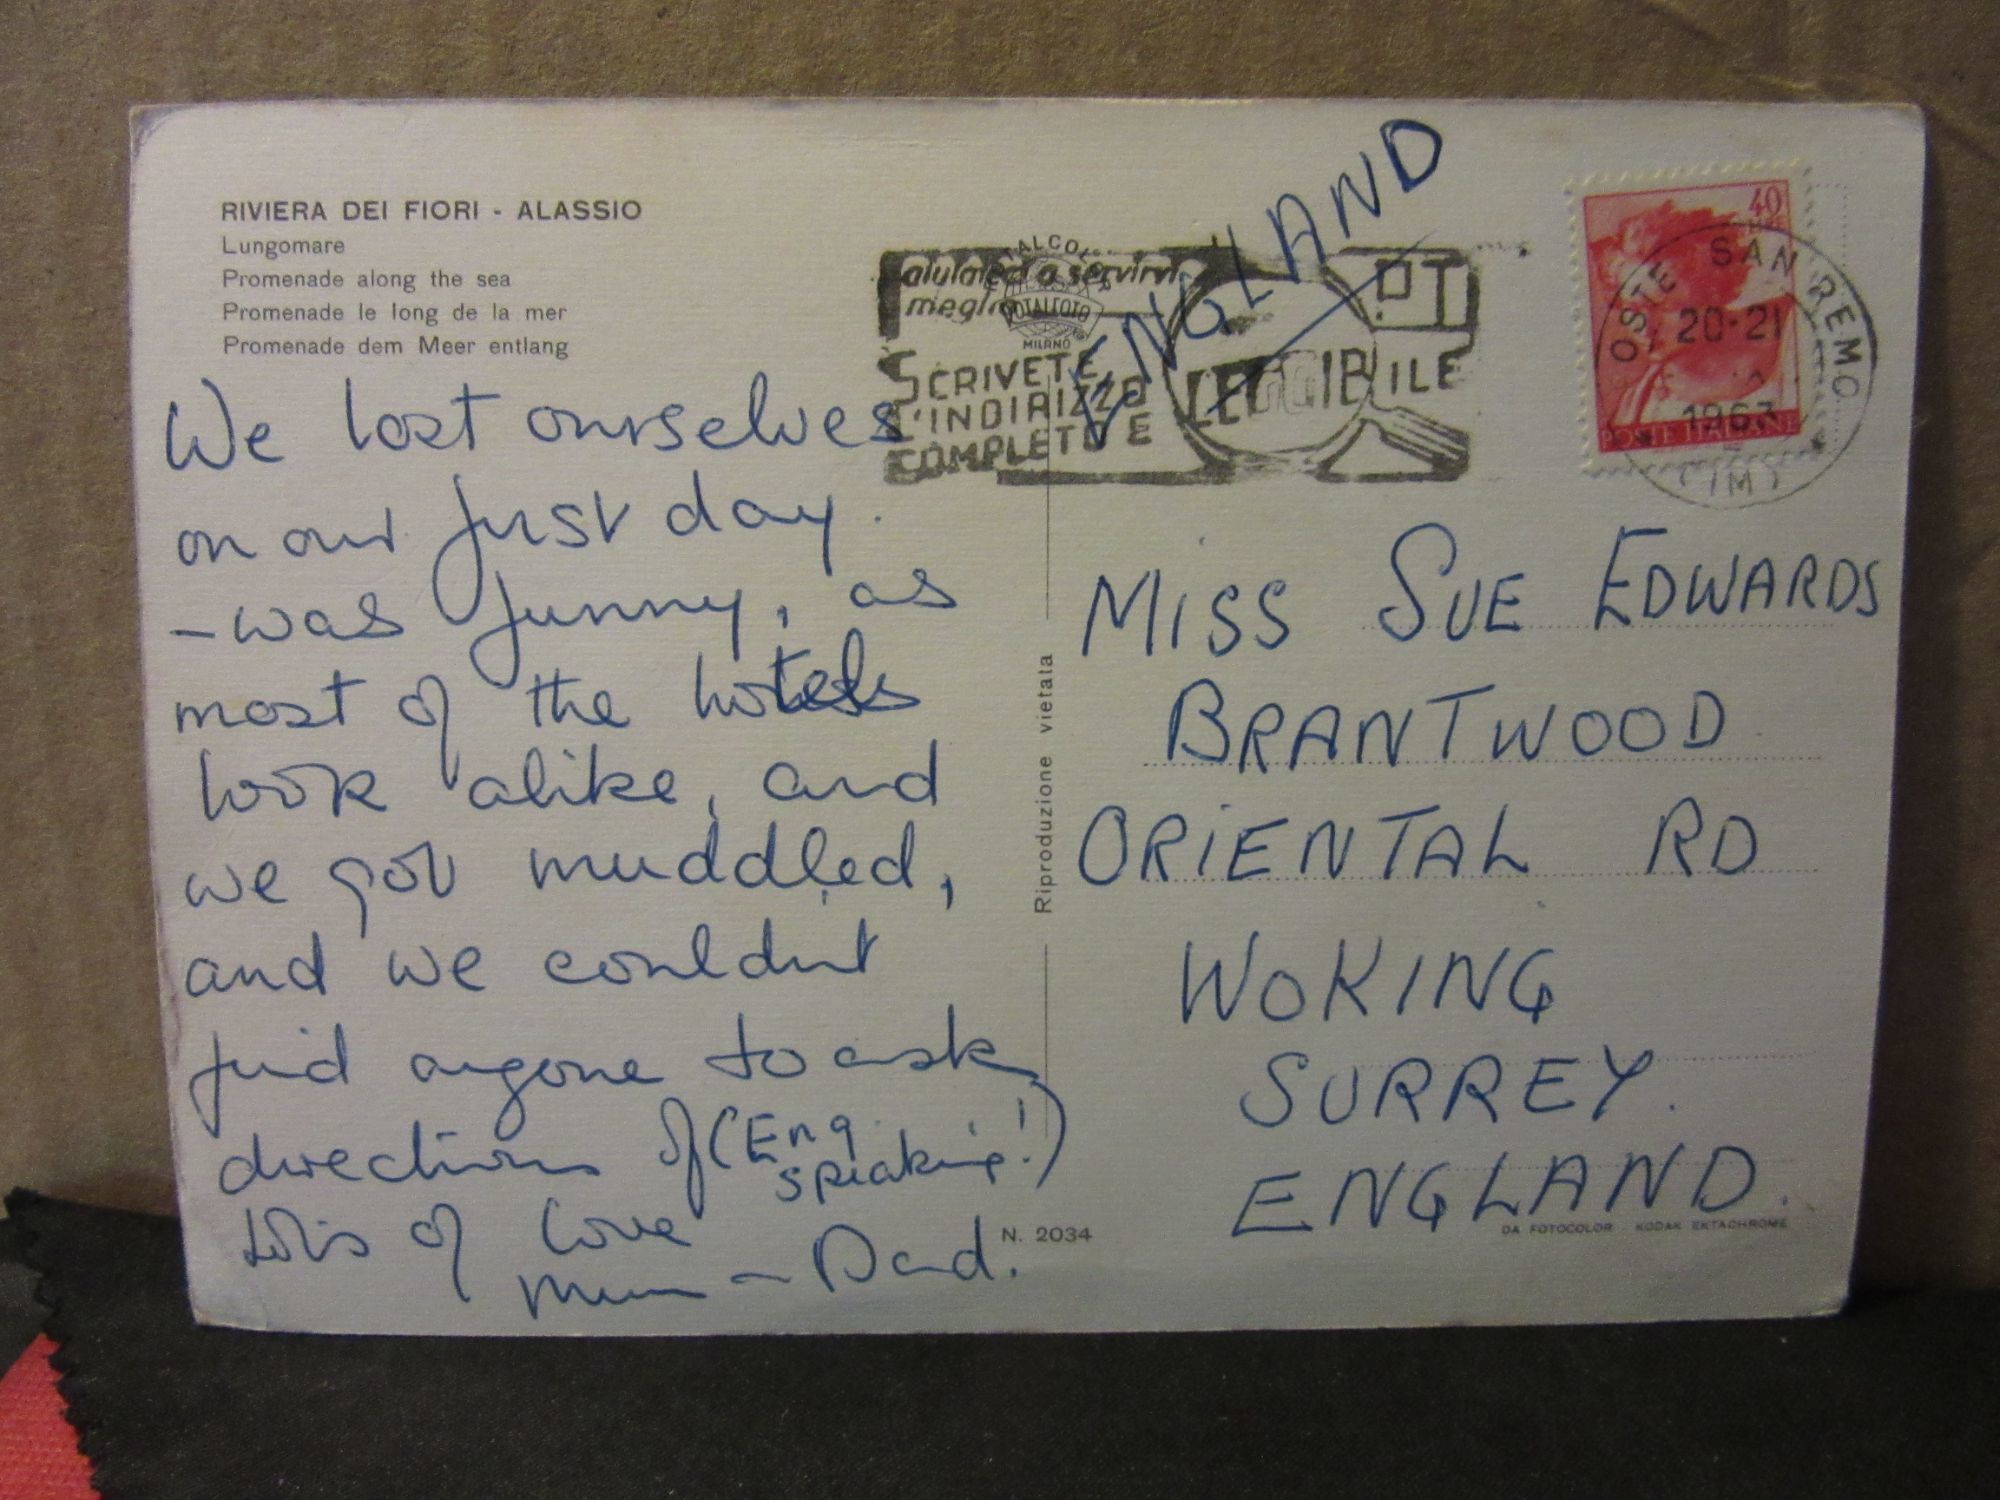 RIVIERA DEI FIORI - ALASSIO
Lungomare
Promenade along the sea
Promenade le long de la mer
Promenade dem Meer entlang
We lost ourselves
on our first day.
- was funny, as
most of the hotels
look alike, and
we got muddled,
and we couldnt
find anyone to ask
directions of (Eng.
speaking!)
Lots of love
Mum - Dad.
N. 2034
Riproduzione vietata
ENGLAND
aiutateci a servirvi
meglio
TOTALCOLOR
TOTALFOTO
MILANO
SCRIVETE
L'INDIRIZZO
COMPLETO E LEGGIBILE
PT
40
POSTE ITALIANE
POSTE SAN REMO
20-21
1963
(IM)
MISS SUE EDWARDS
BRANTWOOD
ORIENTAL RD
WOKING
SURREY.
ENGLAND.
DA FOTOCOLOR KODAK EKTACHROME